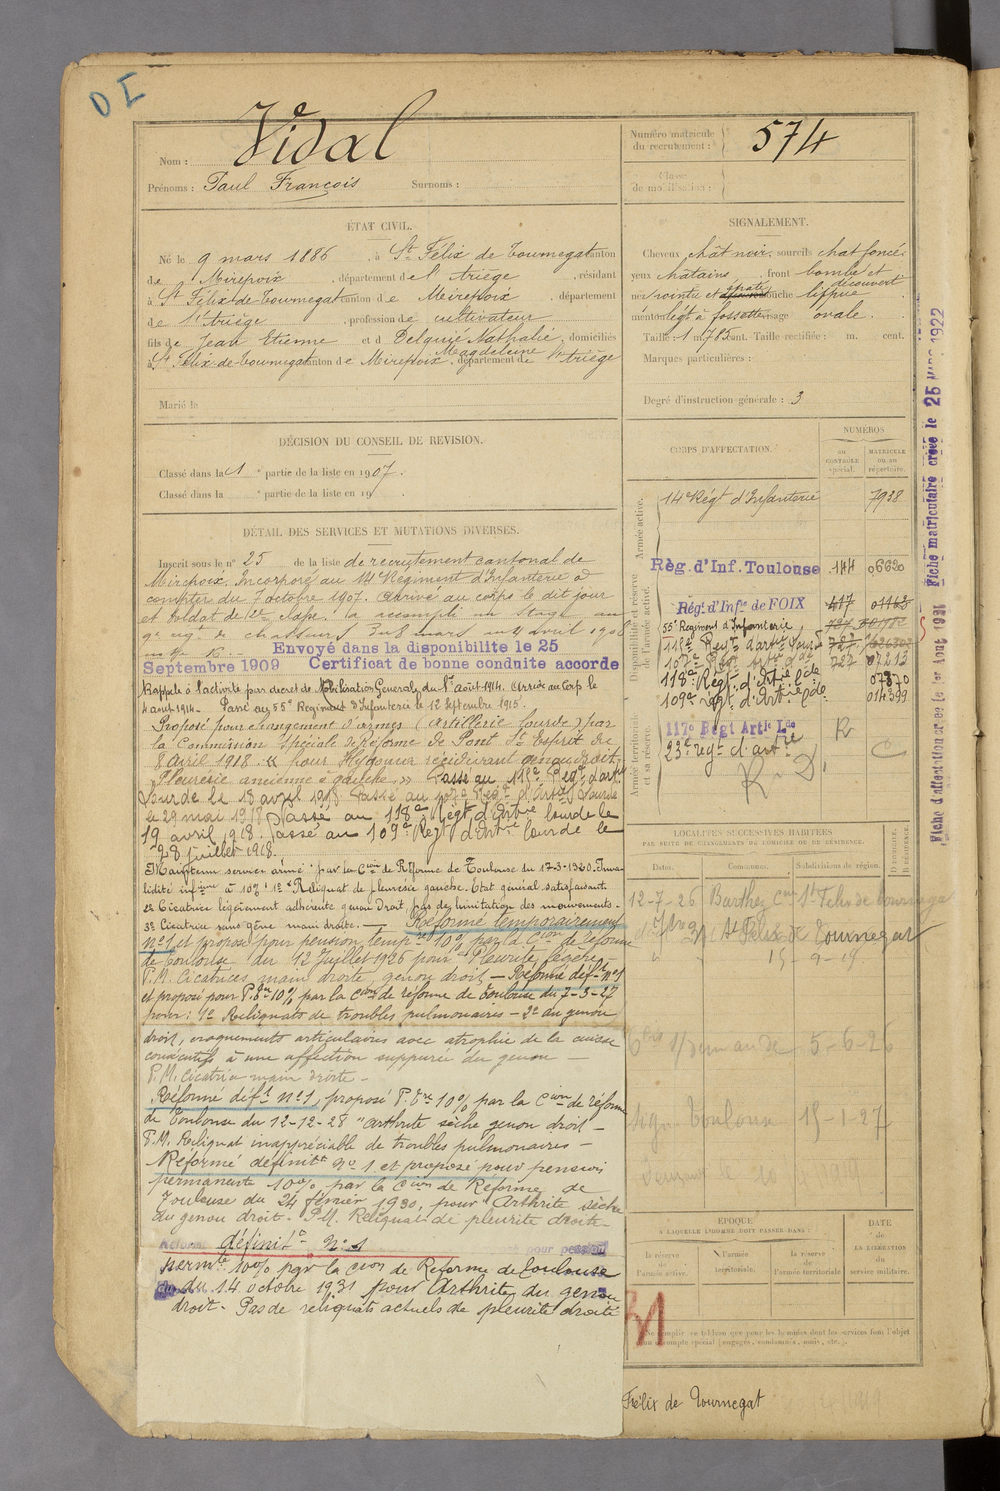 D I
Nom : Vidal
Prénoms : Paul François Surnoms :
Numéro matricule du recrutement : 574
Classe de mobilisation :
ÉTAT CIVIL.
Né le 9 mars 1886, à St Félix de Tournegat canton
de Mirepoix, département de l'Ariège, résidant
à St Félix-de-Tournegat canton de Mirepoix, département
de l'Ariège, profession de cultivateur
fils de Jean Etienne et d Delquié Nathalie Magdeleine, domiciliés
à St Félix-de-Tournegat canton de Mirepoix, département de l'Ariège
Marié le
SIGNALEMENT.
Cheveux chât noir. sourcils chat foncé
yeux chatains, front bombé et découvert
nez pointu et bouche lippue
menton légt à fossette visage ovale.
Taille : 1 m. 785 cent. Taille rectifiée : m. cent.
Marques particulières :
Degré d'instruction générale : 3
DÉCISION DU CONSEIL DE REVISION.
Classé dans la 1 e partie de la liste en 1907.
Classé dans la e partie de la liste en 19 .
DÉTAIL DES SERVICES ET MUTATIONS DIVERSES.
Inscrit sous le n° 25 de la liste de recrutement cantonal de
Mirepoix. Incorporé au 14e Régiment d'Infanterie à
compter du 7 octobre 1907. Arrivé au corps le dit jour
et soldat de 2e classe. a accompli un stage au
9e rég. de chasseurs du 8 mars au 4 avril 1908
Envoyé dans la disponibilite le 25
Septembre 1909 Certificat de bonne conduite accorde
Rappelé à l'activité par decret de Mobilisation Générale du 1er août 1914. Arrivé au Corps le
4 aout 1914. Passé au 55e Régiment d'Infanterie le 12 Septembre 1915.
Proposé pour changement d'armes (artillerie lourde) par
la Commission Spéciale de Réforme de Pont St Esprit du
8 Avril 1918. « pour Hydarthrose récidivant genou droit,
Pleurésie ancienne à gauche. » Passé au 115e Régt d'artie
lourde le 18 avril 1918 Passé au 107e Régt d'Artie Lourde
le 29 mai 1918 Passé au 118e Régt d'Artie lourde le
19 avril 1918. Passé au 109e Régt d'Artie lourde le
28 juillet 1918.
Maintenu service armé par la Cion de Réforme de Toulouse du 17-3-1920. Inva-
lidité infieure à 10% 1e Reliquat de pleurésie gauche. Etat général satisfaisant.
2e Cicatrice légèrement adhérente genou Droit, pas de limitation des mouvements.
3e Cicatrice sans gêne main droite. — Réformé temporairement
n°1 et proposé pour pension tempre 10% par la Cion de réforme
de Toulouse du 12 Juillet 1926 pour Pleurite légère
P.M. Cicatrices main droite, genou droit. — Réformé déft n°1
et proposé pour P. Pre 10% par la Cion de réforme de Toulouse du 7-3-27
pour : 1e Reliquats de troubles pulmonaires - 2e au genou
droit, craquements articulaires avec atrophie de la cuisse
consécutifs à une affection suppurée du genou —
P.M. Cicatrice main droite -
Réformé défit n°1, proposé P. Pre 10% par la Cion de réforme
de Toulouse du 12-12-28 "arthrite sèche genou droit —
P.M. Reliquat inappréciable de troubles pulmonaires —
Réformé définitt N° 1 et proposé pour pension
permanente 10% par la Cion de Réforme de
Toulouse du 24 février 1930, pour Arthrite sèche
du genou droit - P.M. Reliquat de pleurite droite -
Réformé définit N° 1 pour pension
perm.te 10% par la Cion de Réforme de Toulouse
du 14 octobre 1931 pour Arthrite du genou
droit - Pas de reliquats actuels de pleurite droite
CORPS D'AFFECTATION.
NUMÉROS
AU CONTRÔLE spécial.
MATRICULE OU AU répertoire.
Armée active.
14e Régt d'Infanterie 7938
Disponibilité et réserve de l'armée active.
Rég. d'Inf. Toulouse 144 06620
Régt d'Infie de FOIX 417 01163
55e Régiment d'Infanterie
115e Régt d'artie Lourde 727
107e Régt artie lde 727 07213
118e Régt d'Artie lde 07870
109e régt d'Artie lde 014399
Armée territoriale et sa réserve.
117e Régt Artie Lde R
23e régt d'artie C
R. D.
LOCALITÉS SUCCESSIVES HABITÉES
PAR SUITE DE CHANGEMENTS DE DOMICILE OU DE RÉSIDENCE.
Dates. Communes. Subdivisions de région. D. DOMICILE. R. RÉSIDENCE.
12-7-26 St Felix de Tournegat
St Felix de Tournegat
15-9-19
demande 5-6-26
Toulouse 15-1-27
ÉPOQUE
À LAQUELLE L'HOMME DOIT PASSER DANS :
la réserve de l'armée active.
l'armée territoriale.
la réserve de l'armée territoriale
DATE de LA LIBÉRATION du service militaire.
31
Ne remplir ce tableau que pour les hommes dont les services font l'objet
d'un compte spécial (engagés, condamnés, omis, etc.).
Félix de Tournegat
Fiche d'affectation créée le 1er Aout 1921 Fiche matriculaire créée le 25 Mars 1922